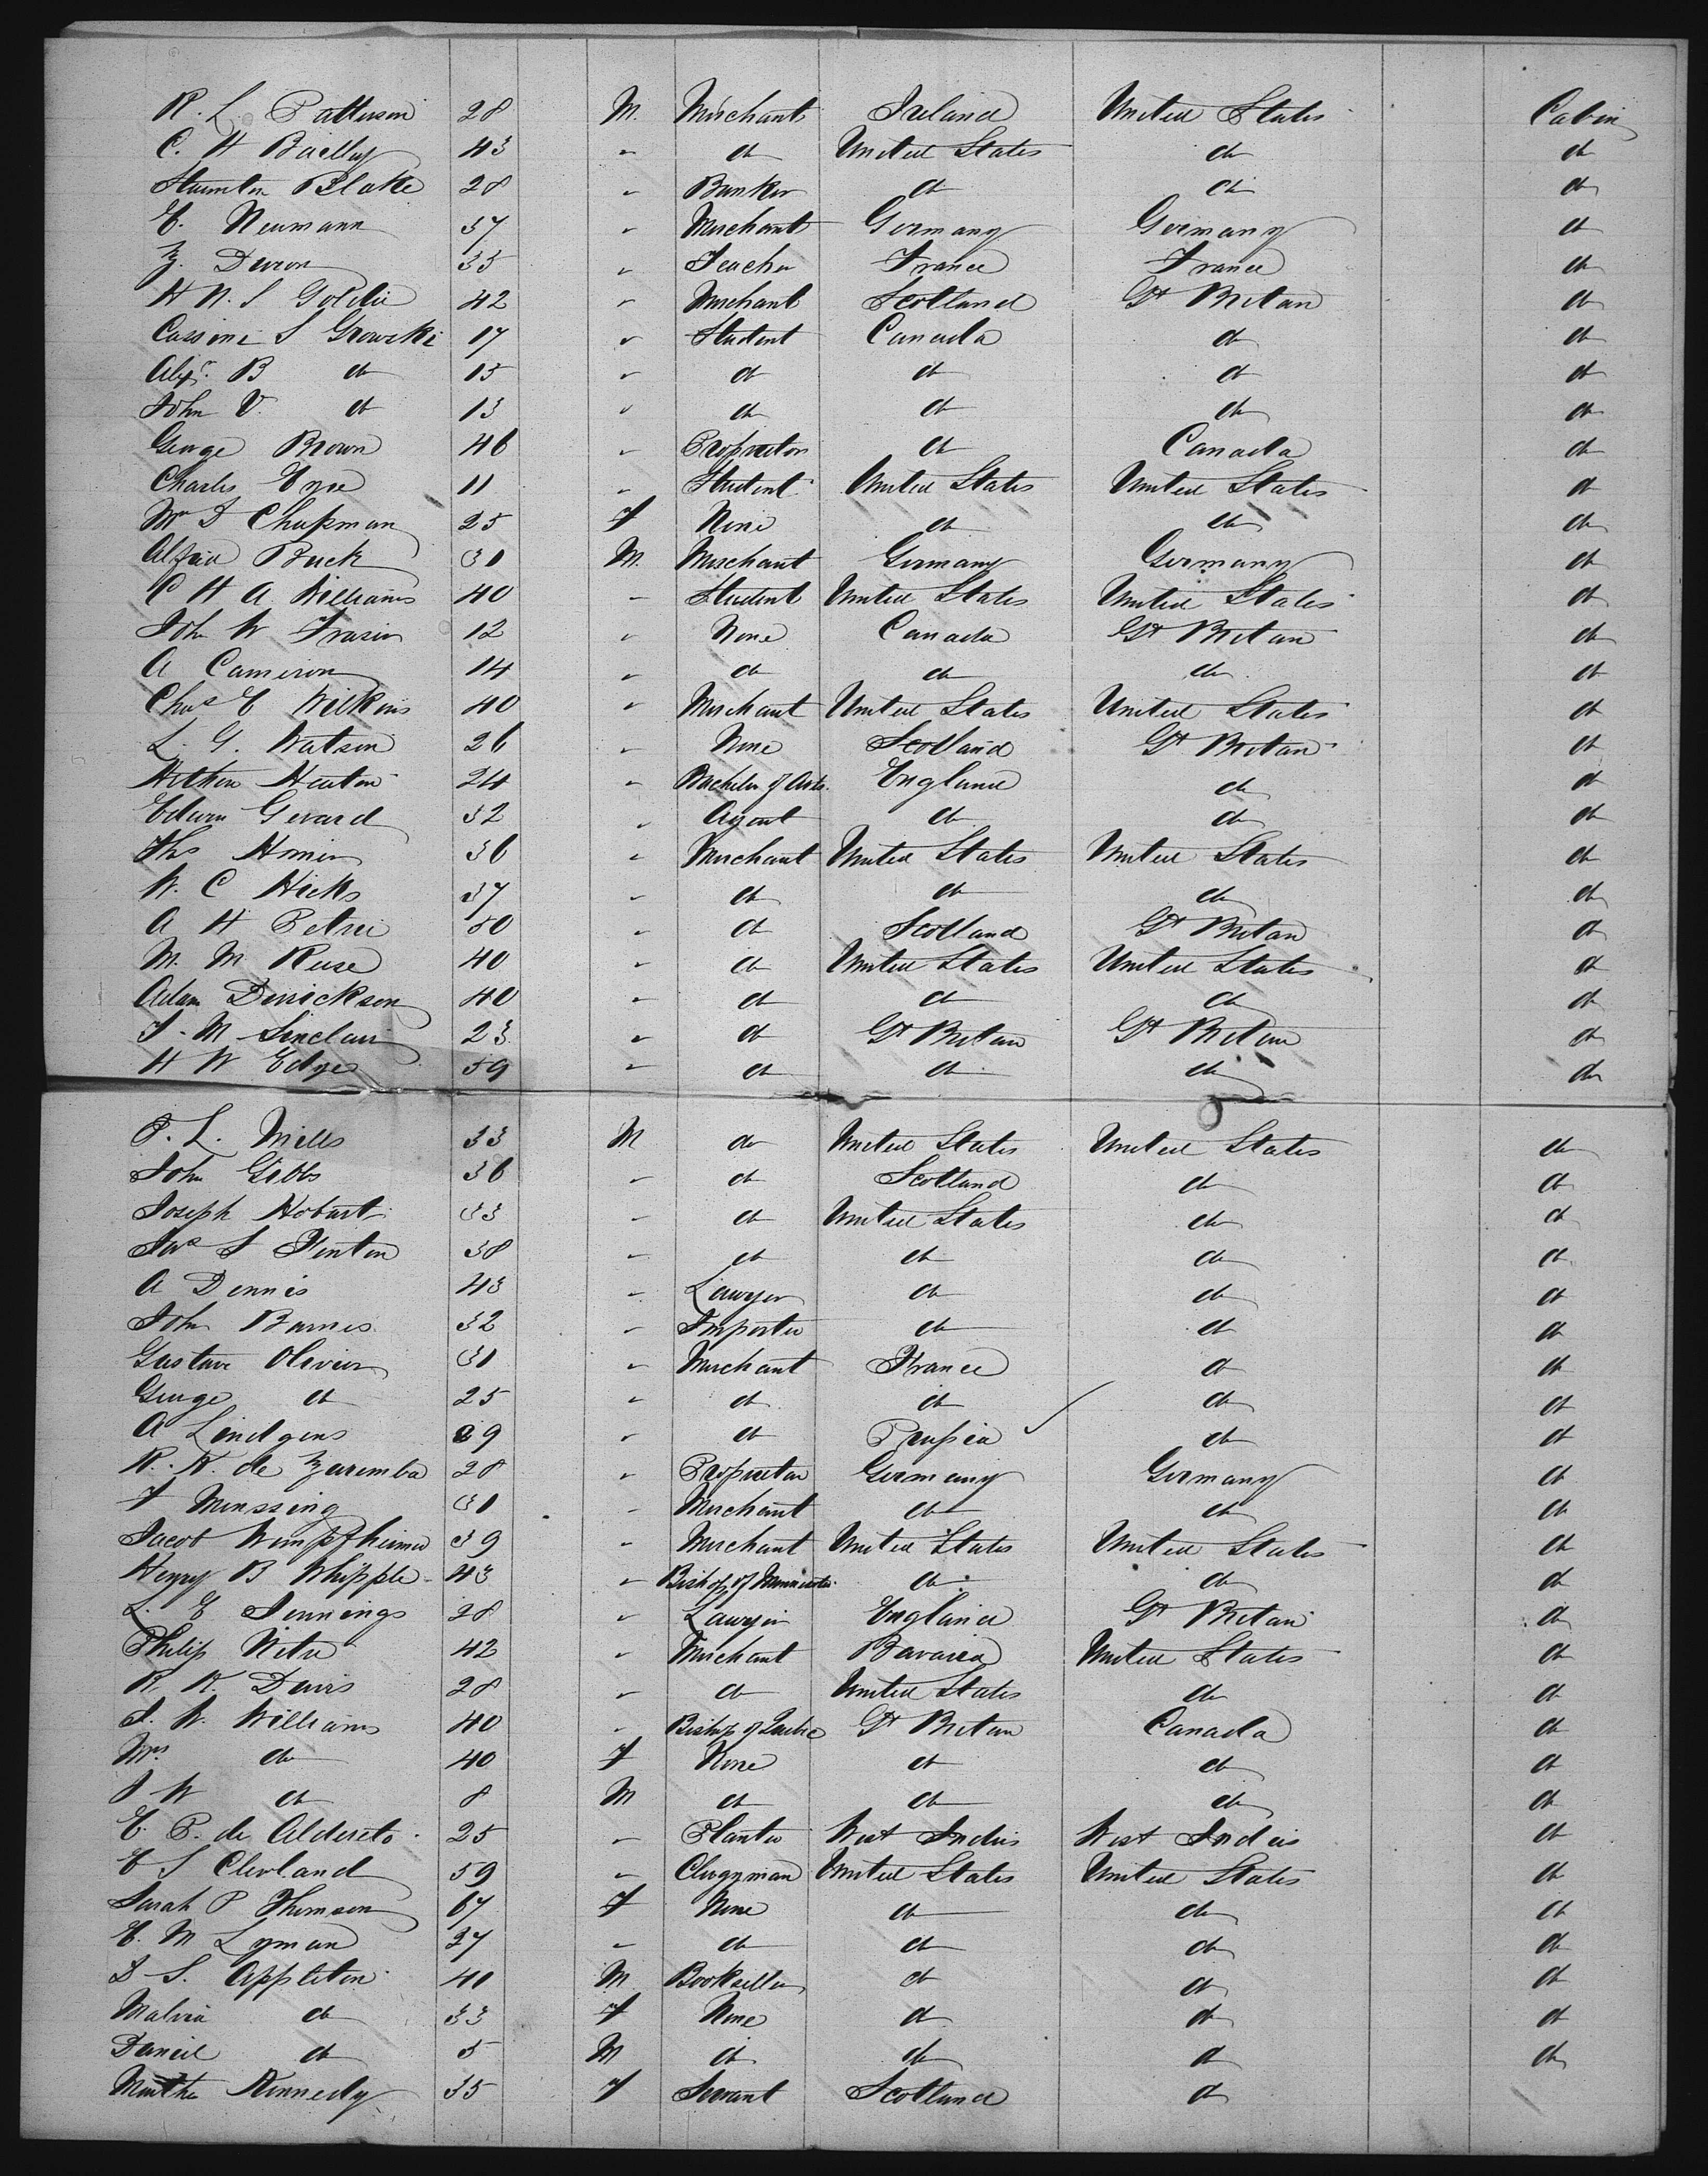 R. L. Patterson 28 M. Merchant Ireland United States Cabin
C. H Bailley 43 " do United States do do
Staunton Blake 28 " Banker do do do
E. Neumann 37 " Merchant Germany Germany do
Z. Duron 35 " Teacher France France do
H N. S Goldie 42 " Merchant Scotland Gt Britan do
Cassimi S Growski 17 " Student Canada do do
Alexr. B do 15 " do do do do
John V. do 13 " do do do do
George Brown 46 " Proprietor do Canada do
Charles Eyre 11 " Student United States United States do
Mrs D Chapman 25 F None do do do
Alfred Buck 31 M. Merchant Germany Germany do
C H A Williams 40 " Student United States United States do
John W Frasier 12 " None Canada Gt Britain do
A Cameron 14 " do do do do
Chas E Wilkins 40 " Merchant United States United States do
L. G. Watson 26 " None Scotland Gt Britan do
Heaton 24 " Bachelor of Arts. England do do
Edwin Gerard 32 " Agent do do do
Ths Homer 36 " Merchant United States United States do
W. C Hicks 37 " do do do do
A H Petrie 50 " do Scotland Gt Britan do
M. M Ruse 40 " do United States United States do
Adam Derrickson 40 " do do do do
J. M Sinclair 23 " do Gt Britan Gt Britan do
H W Edye 59 " do do do do
P. L. Mills 33 M do United States United States do
John Gibbs 36 " do Scotland do do
Joseph Hobart 33 " do United States do do
Jas S Fenton 38 " do do do do
A Dennis 43 " Lawyer do do do
John Barnes 32 " Importer do do do
Gustave Olivier 31 " Merchant France do do
George do 25 " do do do do
A Lindgens 39 " do Prussia do do
R. K. de Zaremba 28 " Proprietor Germany Germany do
F Menssing 31 " Merchant do do do
Jacob Wimpfheimer 39 " Merchant United States United States do
Henry B Whipple 43 " Bishop of Minnesota do do do
L. E Jennings 28 " Lawyer England Gt Britain do
Philip 42 " Merchant Bavaria United States do
R. K. Davis 28 " do United States do do
J. W. Williams 40 " Bishop of Quebec Gt Britan Canada do
Mrs. do 40 F None do do do
J W do 8 M do do do do
E. P. de Aldereto 25 " Planter West Indies West Indies do
E S Clevland 59 " Clergyman United States United States do
Sarah P Thomson 67 F None do do do
E. M Lyman 27 " do do do do
D S. Appleton 41 M Bookseller do do do
Malvia do 33 F None do do do
Daniel do 5 M do do do do
Martha Kennedy 35 F Servant Scotland do